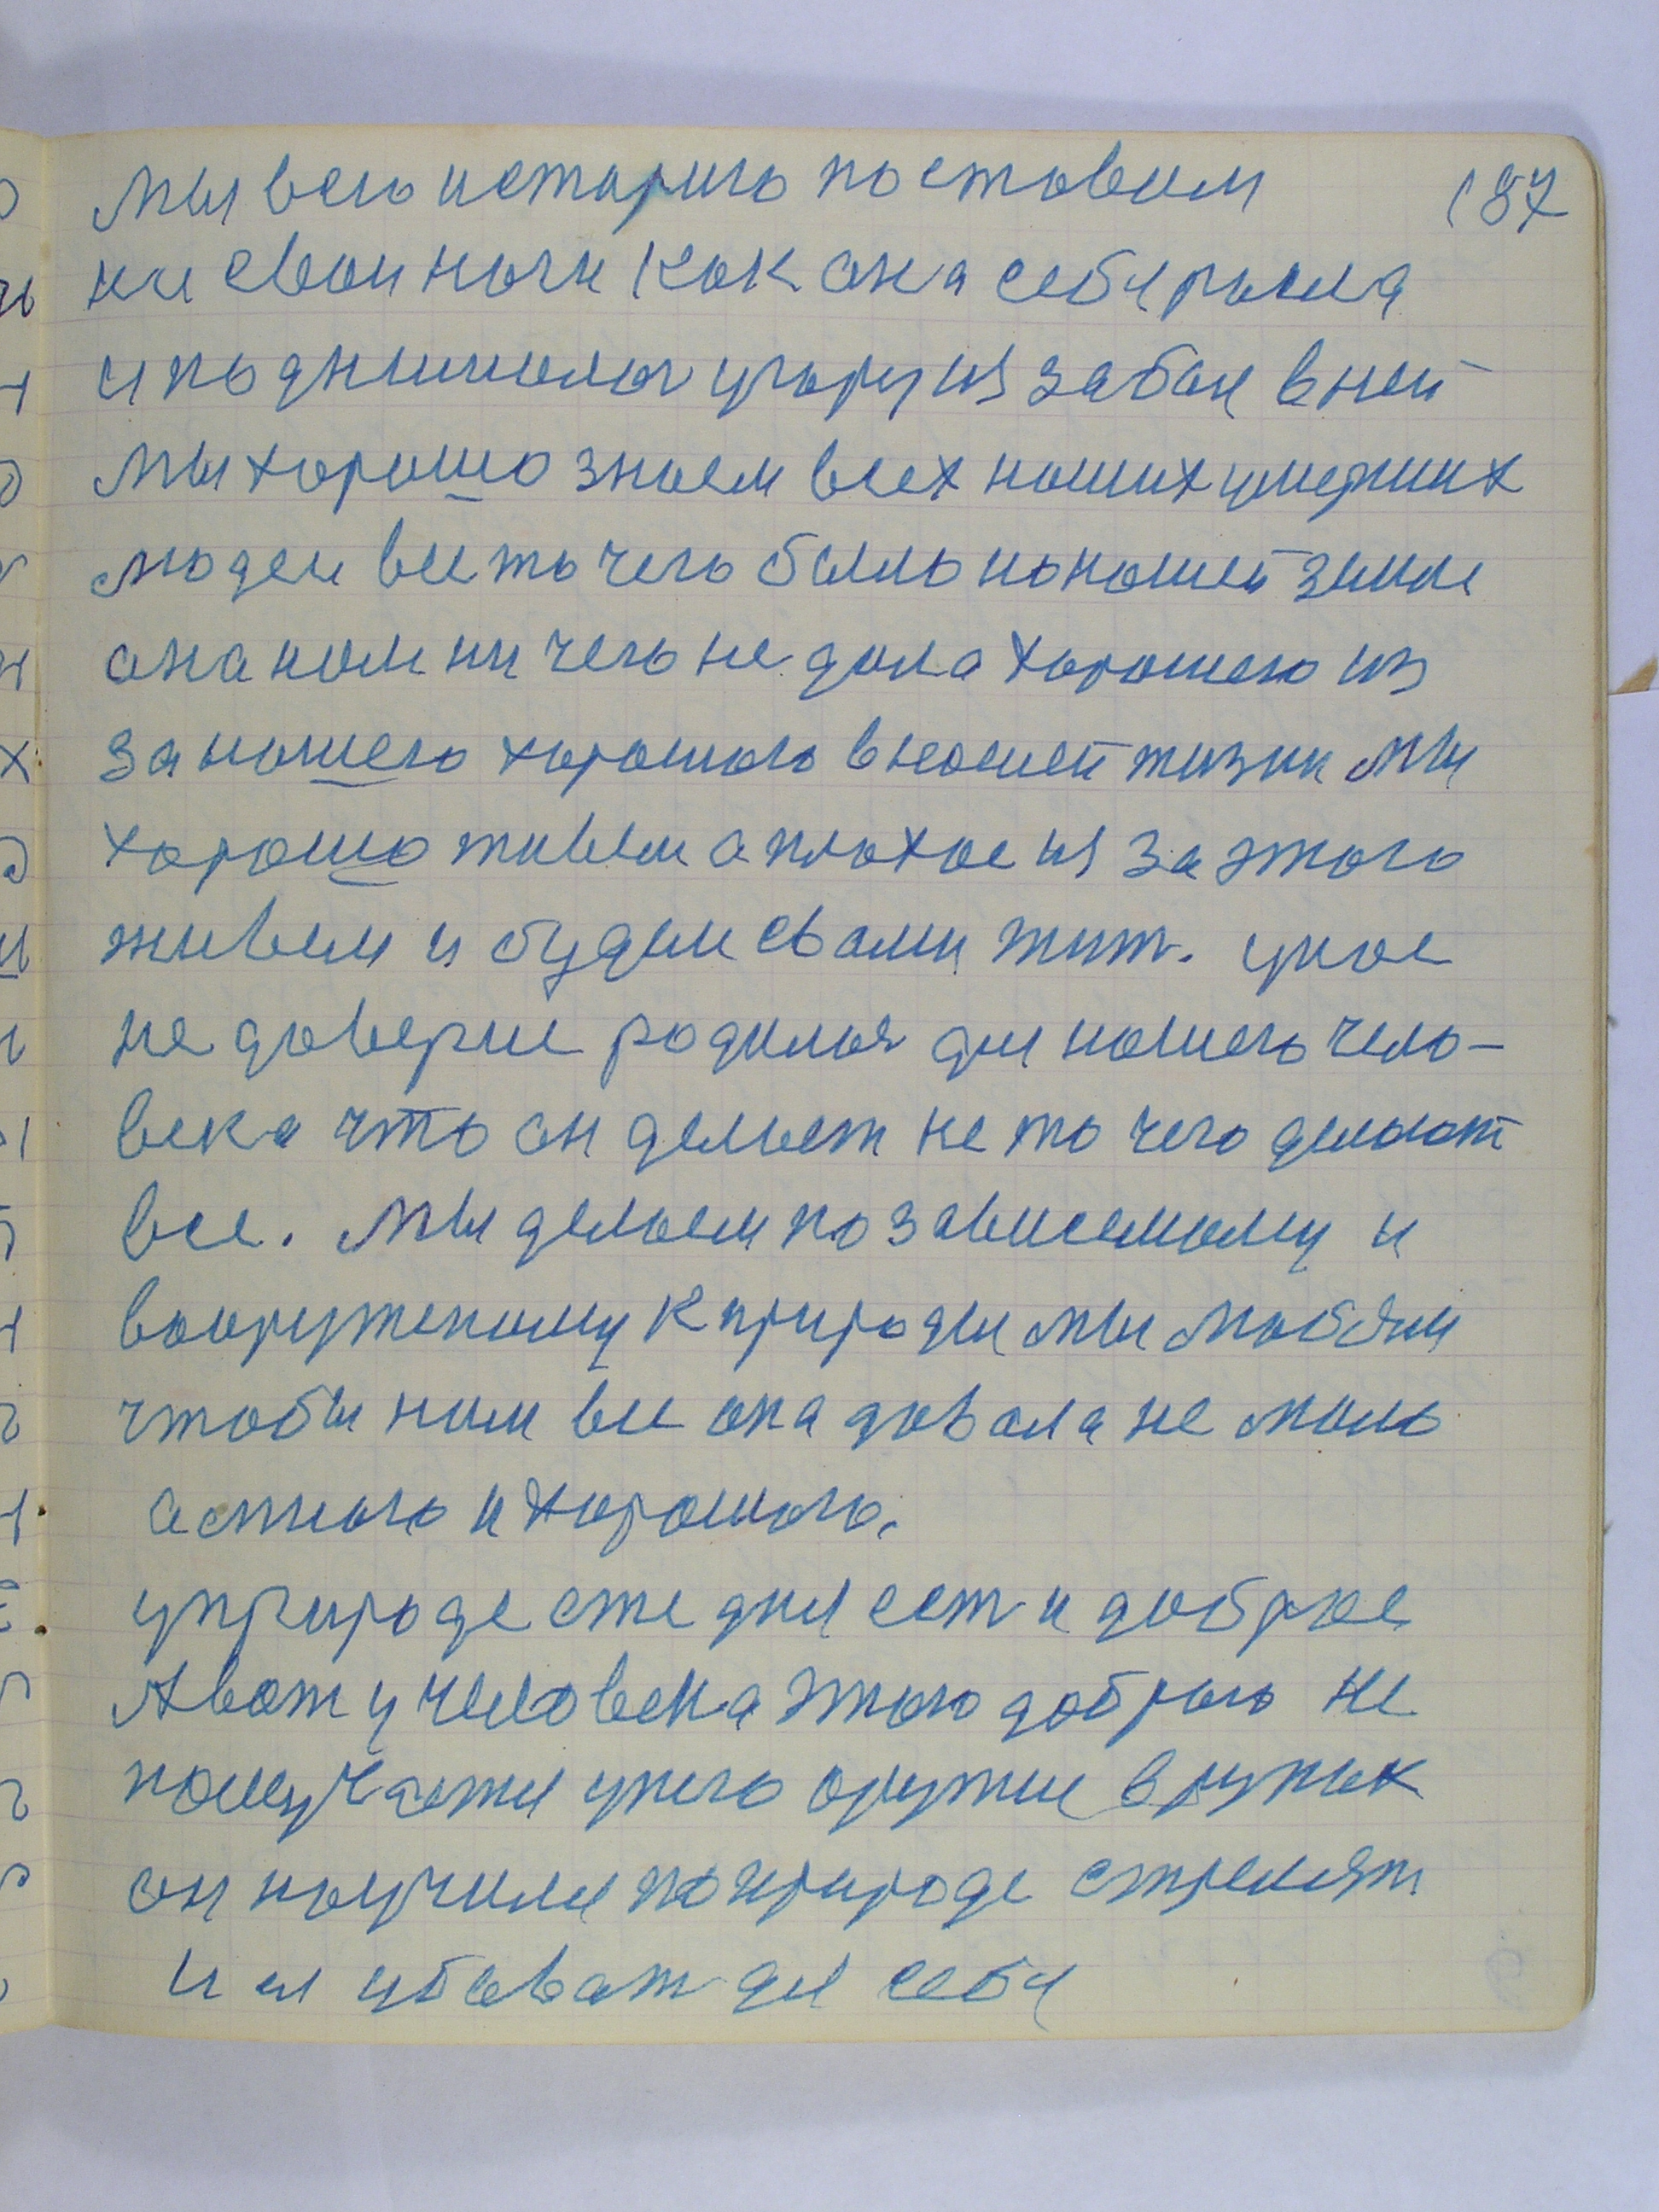 187
мы всю историю поставим
на свои ноги как она себя росла
и поднималась угору из забои в ней
мы хорошо знаем всех наших умерших
людей все то чего было на нашей земле
она нам ни чего не дала хорошего из
за нашего хорошого в нашей жизни мы
хорошо живем а плохое из за этого
живем и будем свами жит. укое
не доверие родилося для нашего чело-
века что он делает не то чего делают
все. мы делаем по зависемому и
вооруженому к природы мы любим
чтобы нам все она давала не мало
а стного и хорошого.
уприроде сте дня ест и доброе
А вот у человека этого доброго не
получается унего оружие вруках
он научился по природе стрелят
и ея убиват для себя